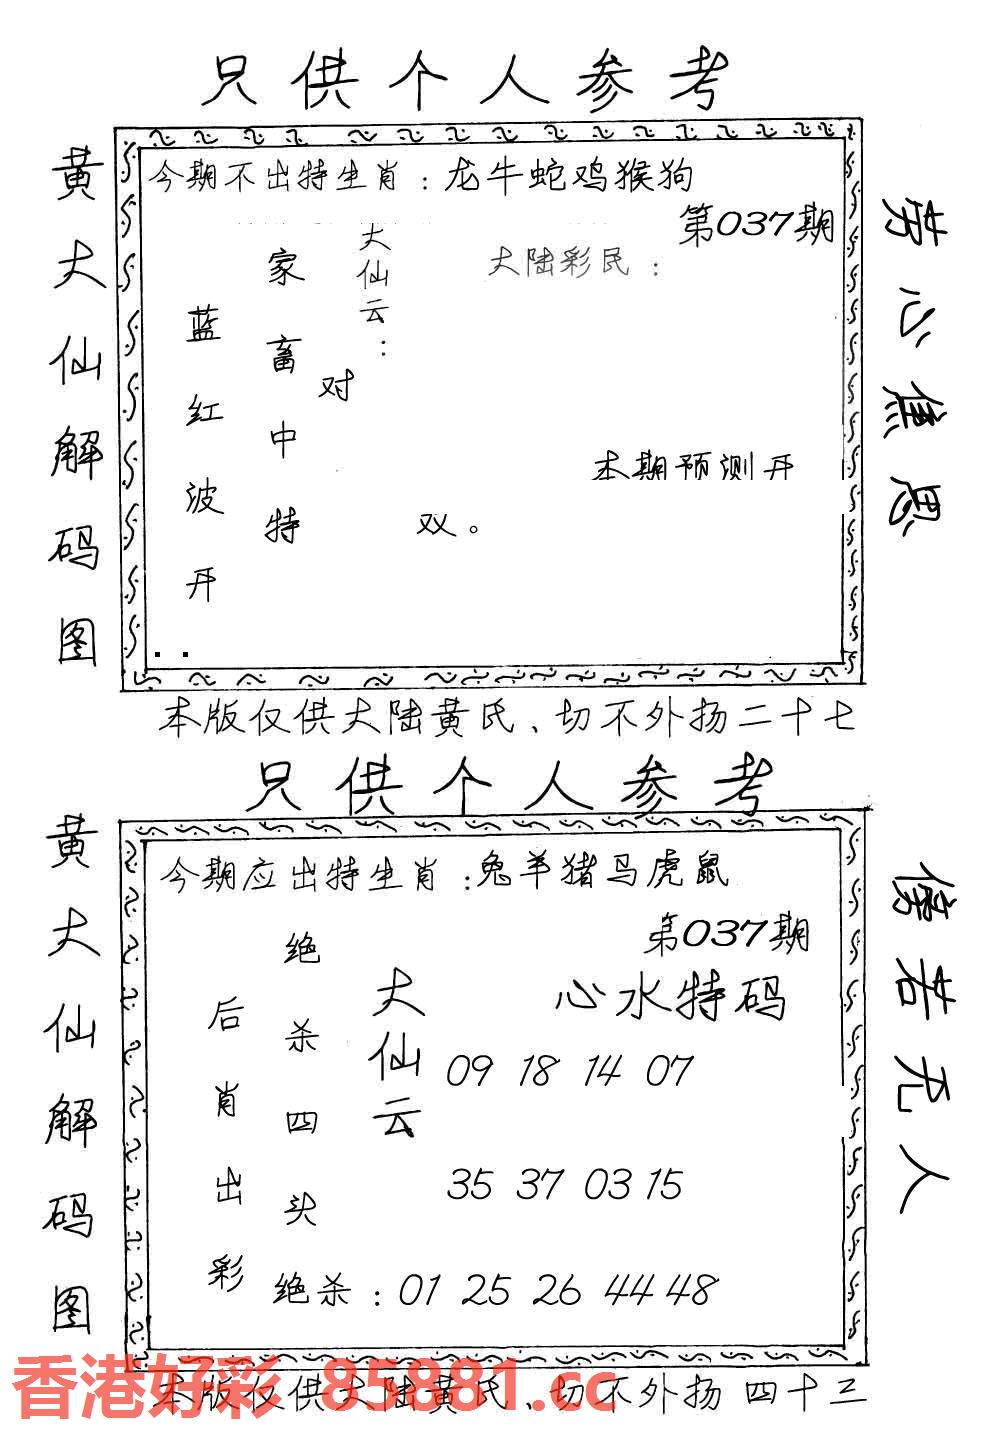 只供个人参考
黄大仙解码图
今期不出特生肖：龙牛蛇鸡猴狗
第037期
蓝红波开
家畜中特
对
大仙云：
双。
大陆彩民：
本期预测开
劳心焦思
本版仅供大陆黄氏、切不外扬二十七
只供个人参考
黄大仙解码图
今期应出特生肖：兔羊猪马虎鼠
第037期
后肖出彩
绝杀四头
大仙云
心水特码
09 18 14 07
35 37 03 15
绝杀：01 25 26 44 48
傍若无人
香港好彩 85881.cc
本版仅供大陆黄氏、切不外扬 四十三